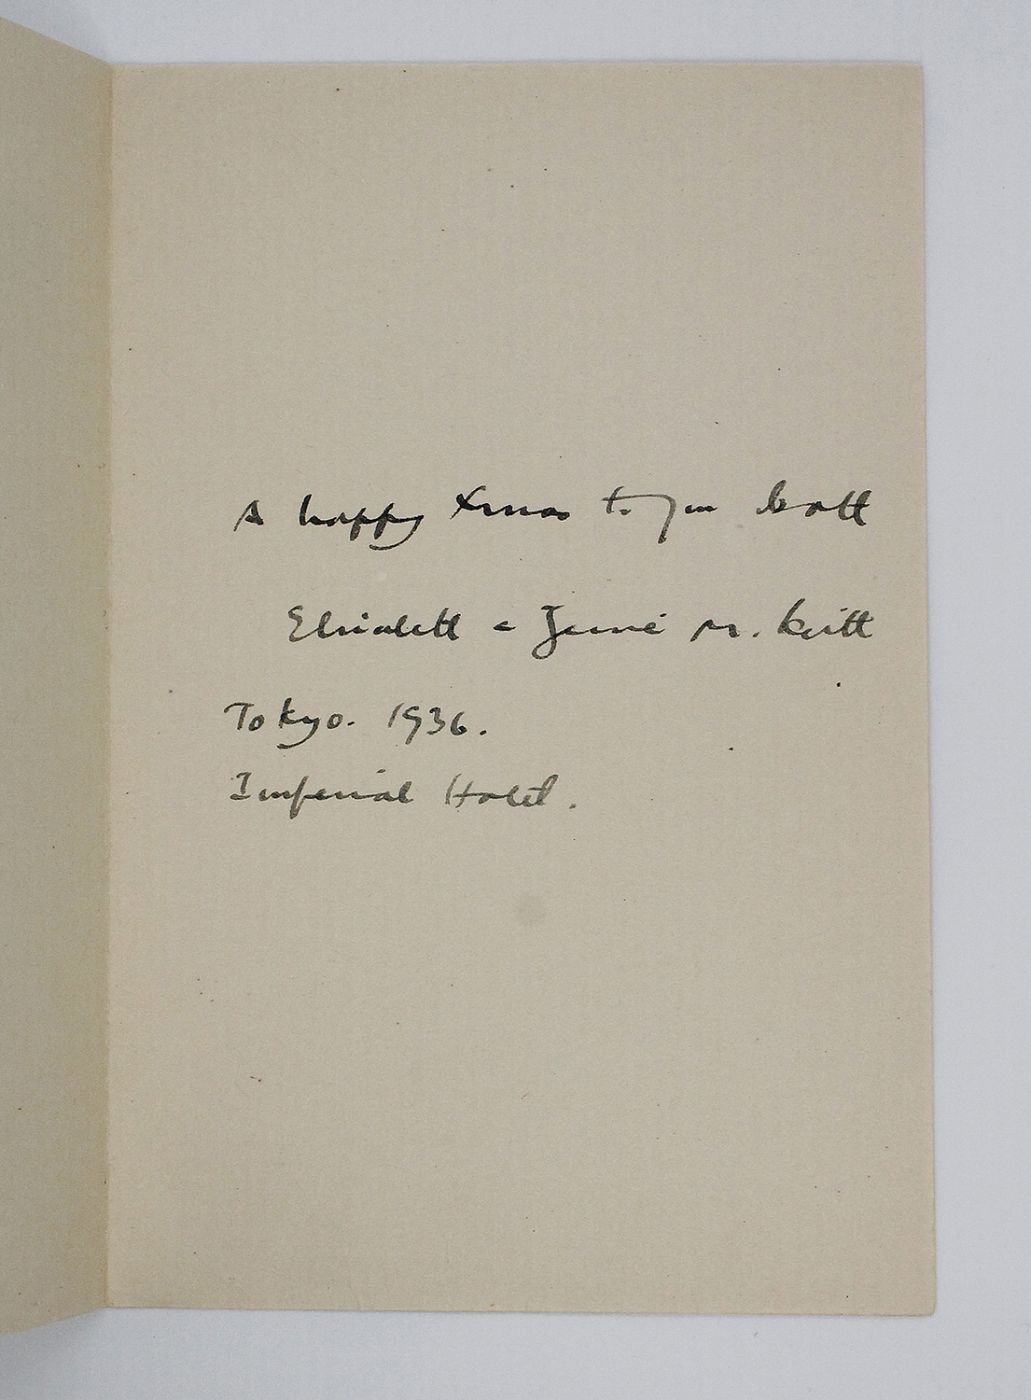 A happy Xmas to you both
Elizabeth & Jessie M. Keith
Tokyo. 1936.
Imperial Hotel.